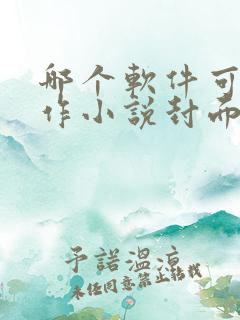 哪个軟件可
作小說封面
予諾溫涼
未经同意禁止转载